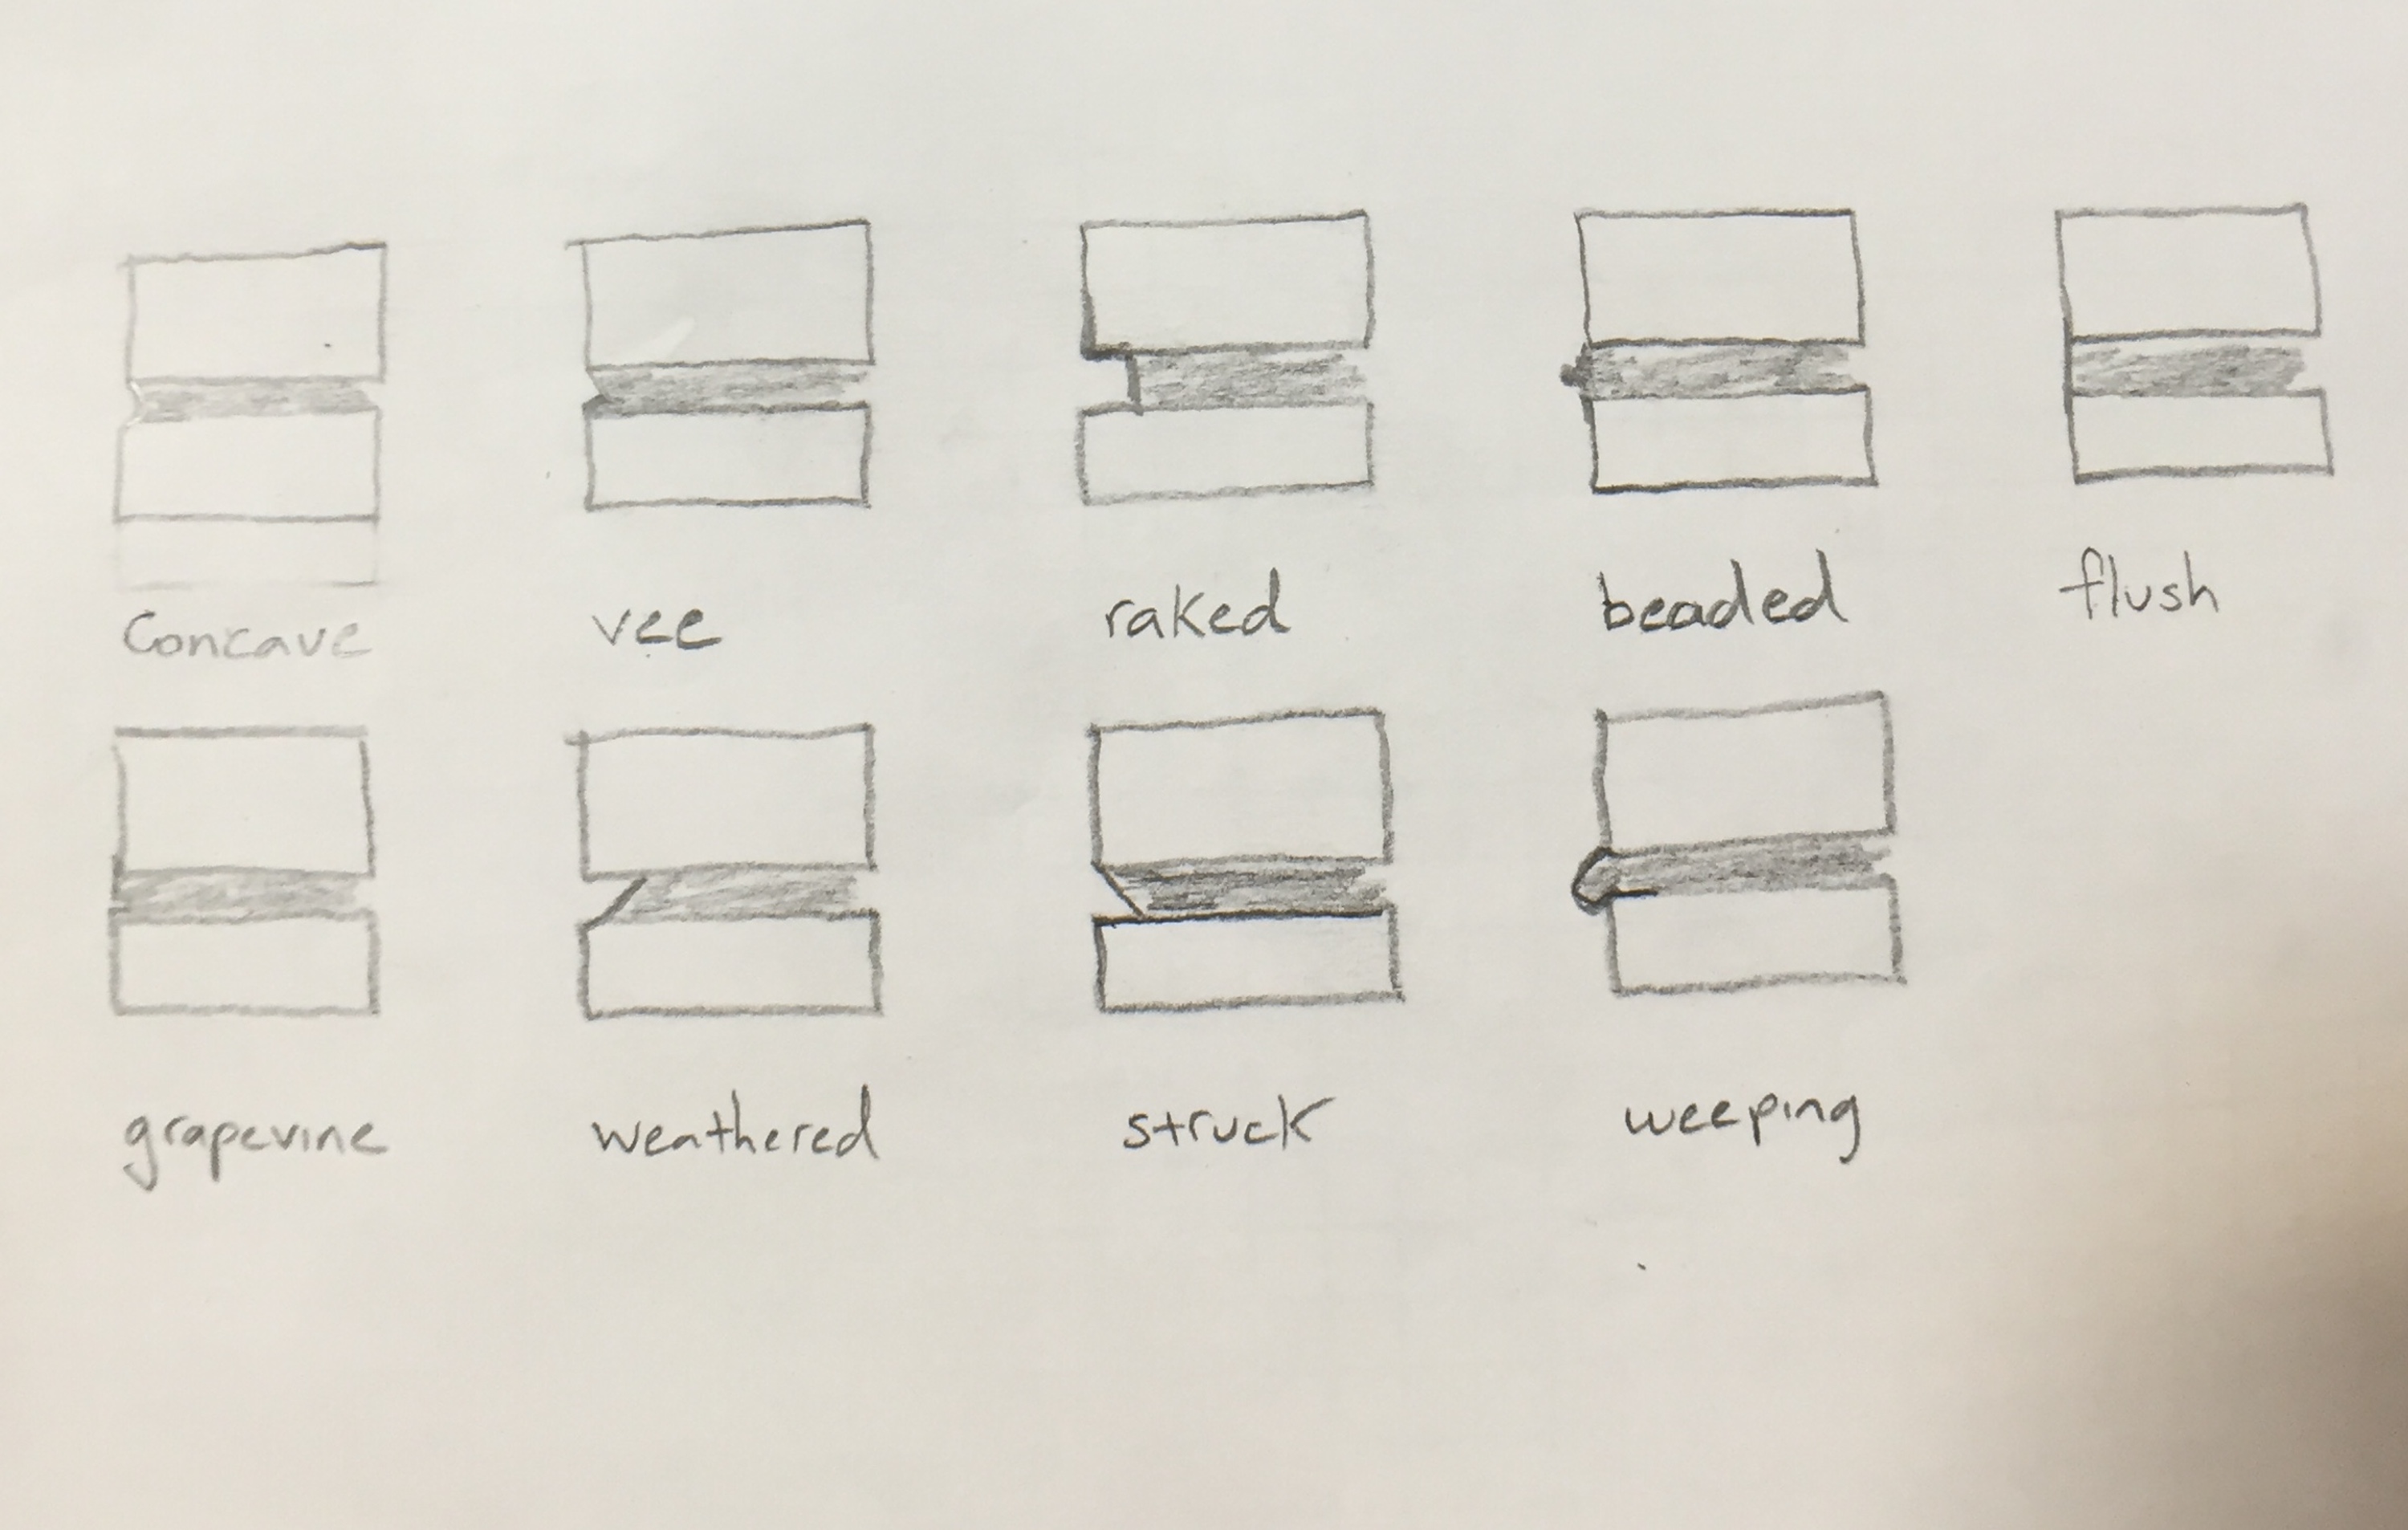 Concave vee raked beaded flush
grapevine weathered struck weeping